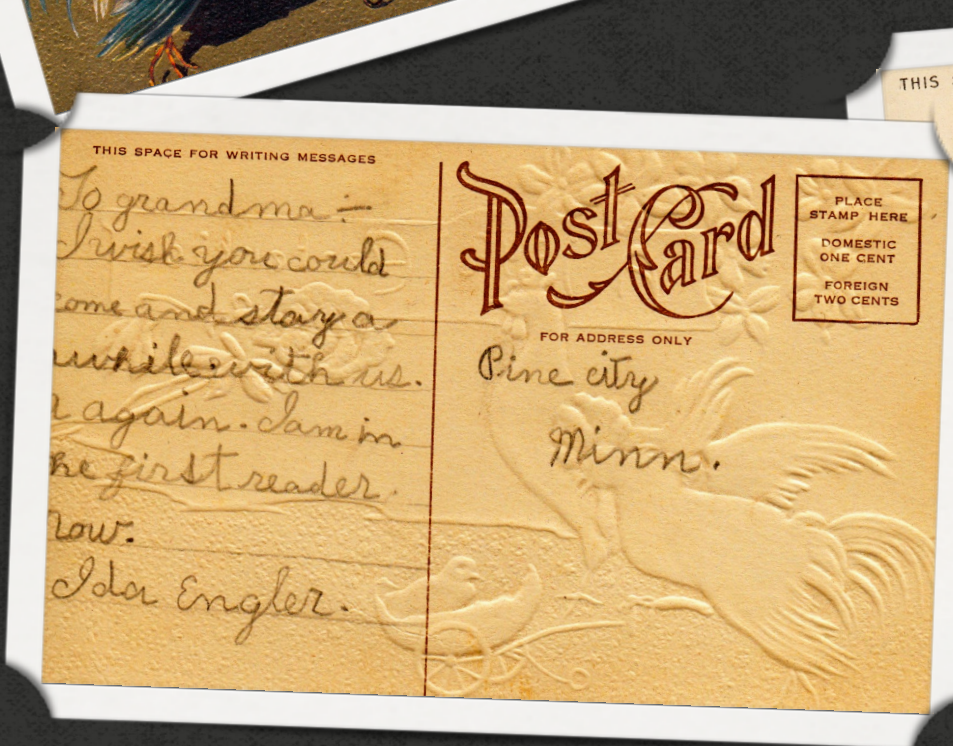 THIS
THIS SPACE FOR WRITING MESSAGES
To grandma :-
I wish you could
come and stay a
while with us.
again. I am in
the first reader.
now.
Ida Engler.
Post Card
PLACE
STAMP HERE
DOMESTIC
ONE CENT
FOREIGN
TWO CENTS
FOR ADDRESS ONLY
Pine city
Minn.